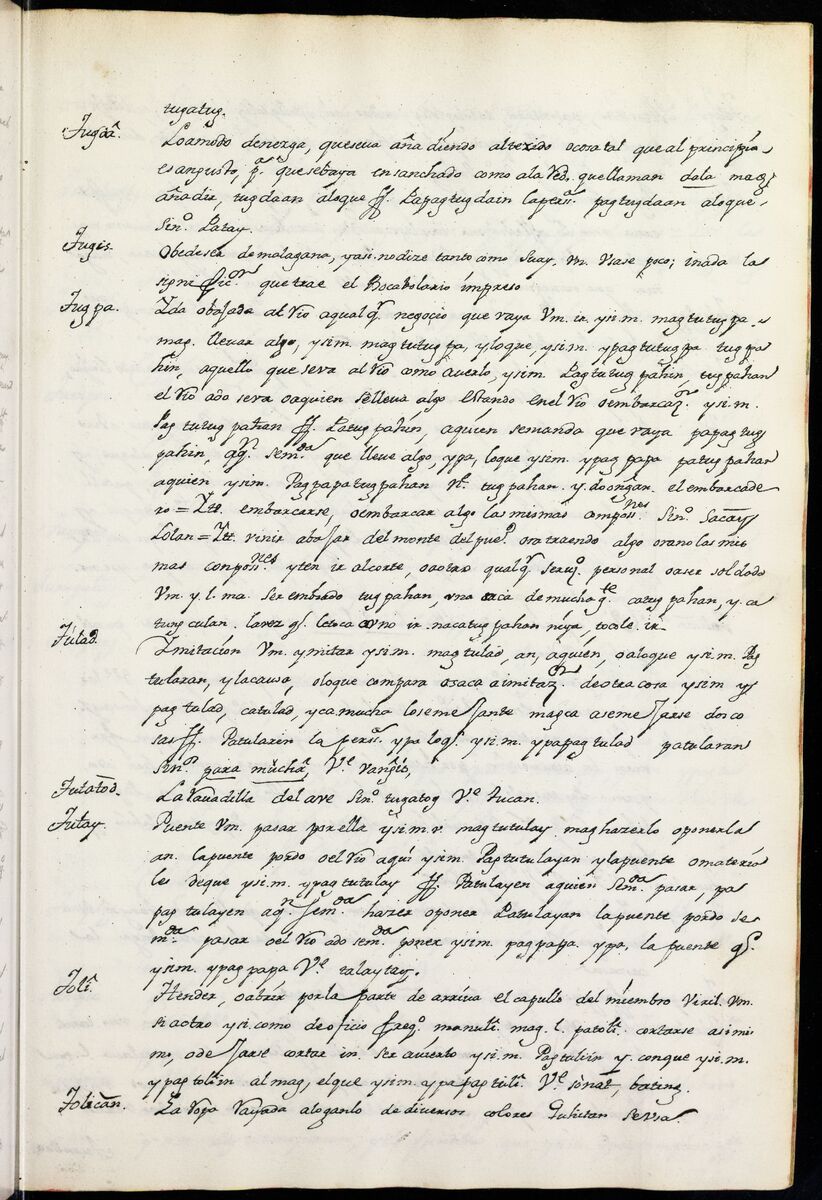 tugatug.
Tugdâ. Lo a modo de nezga, que se va añadiendo al texido o cosa tal que al principio
es angusto, pª. que se baya ensanchado como a la Red, que llaman dala mag
añadir, tugdaan a lo que ff. Papagtugdain la perssª. pagtugdaan a lo que
sinº. Latay.
Tugis. Obedescer de mala gana, y asi no dize tanto como Suay, Vm. Vsase poco; i nada la
significon que trae el Bocabolario impreso
Tugpa. Yda o bajada al Rio a qualqr. negoçio que vaya Vm. ir. ysi.m. magtutugpa.
mag. lleuar algo, ysim. magtutugpa, y lo que, ysi m. ypagtutugpa tugpa
hin, aquello que se va al Rio como a uerlo, ysim. Pagtutugpahin, tugpahan
el Rio a do se va o a quien se lleva algo estando en el Rio o embarcazn. ysi.m.
Pagtutugpahan ff. Patugpahin, a quien se manda que vaya papagtug
pahin, aqn. semda que lleue algo, ypa, lo que ysim. ypagpapa patugpahan
a quien ysim. Pagpapatugpahan Vt. tugpahan. y. doongan. el embarcade
ro = Ytt. embarcarse, o embarcar algo las mismas composs.nes Sinº. Sacay
Lolan = Ytt. venir abajar del monte del pueº. o ra traendo algo o ra no las mis
mas conposs.nes yten ir al corte, o a otro qualqr. seruiº. personal o a ser soldado
Vm. y. l. ma. ser embiado tugpahan, vna saca de mucha gte. catugpahan, y. ca
tungculan. la vez q. le toca o no ir. nacatugpahan niya, tocole ir.
Tulad. Ymitaçion Vm. ymitar ysi m. magtulad, an, a quien, o a lo que ysi m. Pag
tularan, y la causa, o lo que compara o saca a imitazon. de otra cosa ysim y
pagtulad, catulad, ycamucha lo semejante magca asemejarse dos co
sas ff. Patularin la perssª. ypa lo q. ysi.m. ypapagtulad patularan
Sinº. para muchâ, Ve.
Tutatod. La Rauadilla del ave Sinº. tugatog Vº. Tucan.
Tulay. Puente Vm. pasar por ella ysi.m.v. magtutulay mag hazerlo o ponerla
an. la puente por do o el Rio a qui ysi m. Pagtutulayan y la puente o materia
les de que ysi.m. ypagtutulay ff. Patulayen a quien semda pasar, pa
pagtulayen aqn. semda hazer o poner Patulayan la puente por do se
mda pasar o el Rio a do semda poner ysim. pagpapa ypa, la puente q.
ysi.m. ypagpapa Ve. talaytay.
Toli. Hender, o abrir por la parte de arriua el capullo del miembro Viril. Vm.
si a otro y si como de oficio freqº. manuli. mag. l. patoli. cortarse a si mis
mo, o dejarse cortar in. ser auierto ysi m. Pagtuliin y. con que ysi.m.
ypagtoliin al mag, el que ysi m. ypapagtuli. Ve. sonat, bating.
Tolican. La ropa Rayada a lo ganlo de diversos colores